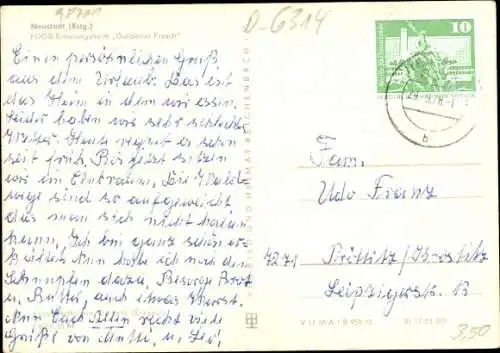 98701
D-6314
Neustadt (Rstg.)
FDGB-Erholungsheim „Goldener Frosch"
Einen persönlichen Gruß
aus dem Urlaub. Das ist
das Heim in dem wir essen.
Leider haben wir sehr schlechtes
Wetter. Heute regnet es schon
seit früh. Bis jetzt sitzen
wir im Clubraum. Die Wald-
wege sind so aufgeweicht
das man sich nicht halten
kann, Ich bin ganz schön er-
kältet. Nun habe ich noch den
Schnupfen dazu. Besorge Brot
u. Butter, auch etwas Wurst.
Nun Euch Allen recht viele
Grüße von Mutti u.
10
Fam.
Udo Franz
7271 Pröttitz/Krostitz
Leipzigerstr. 13
BILD UND HEIMAT REICHENBACH
3,50